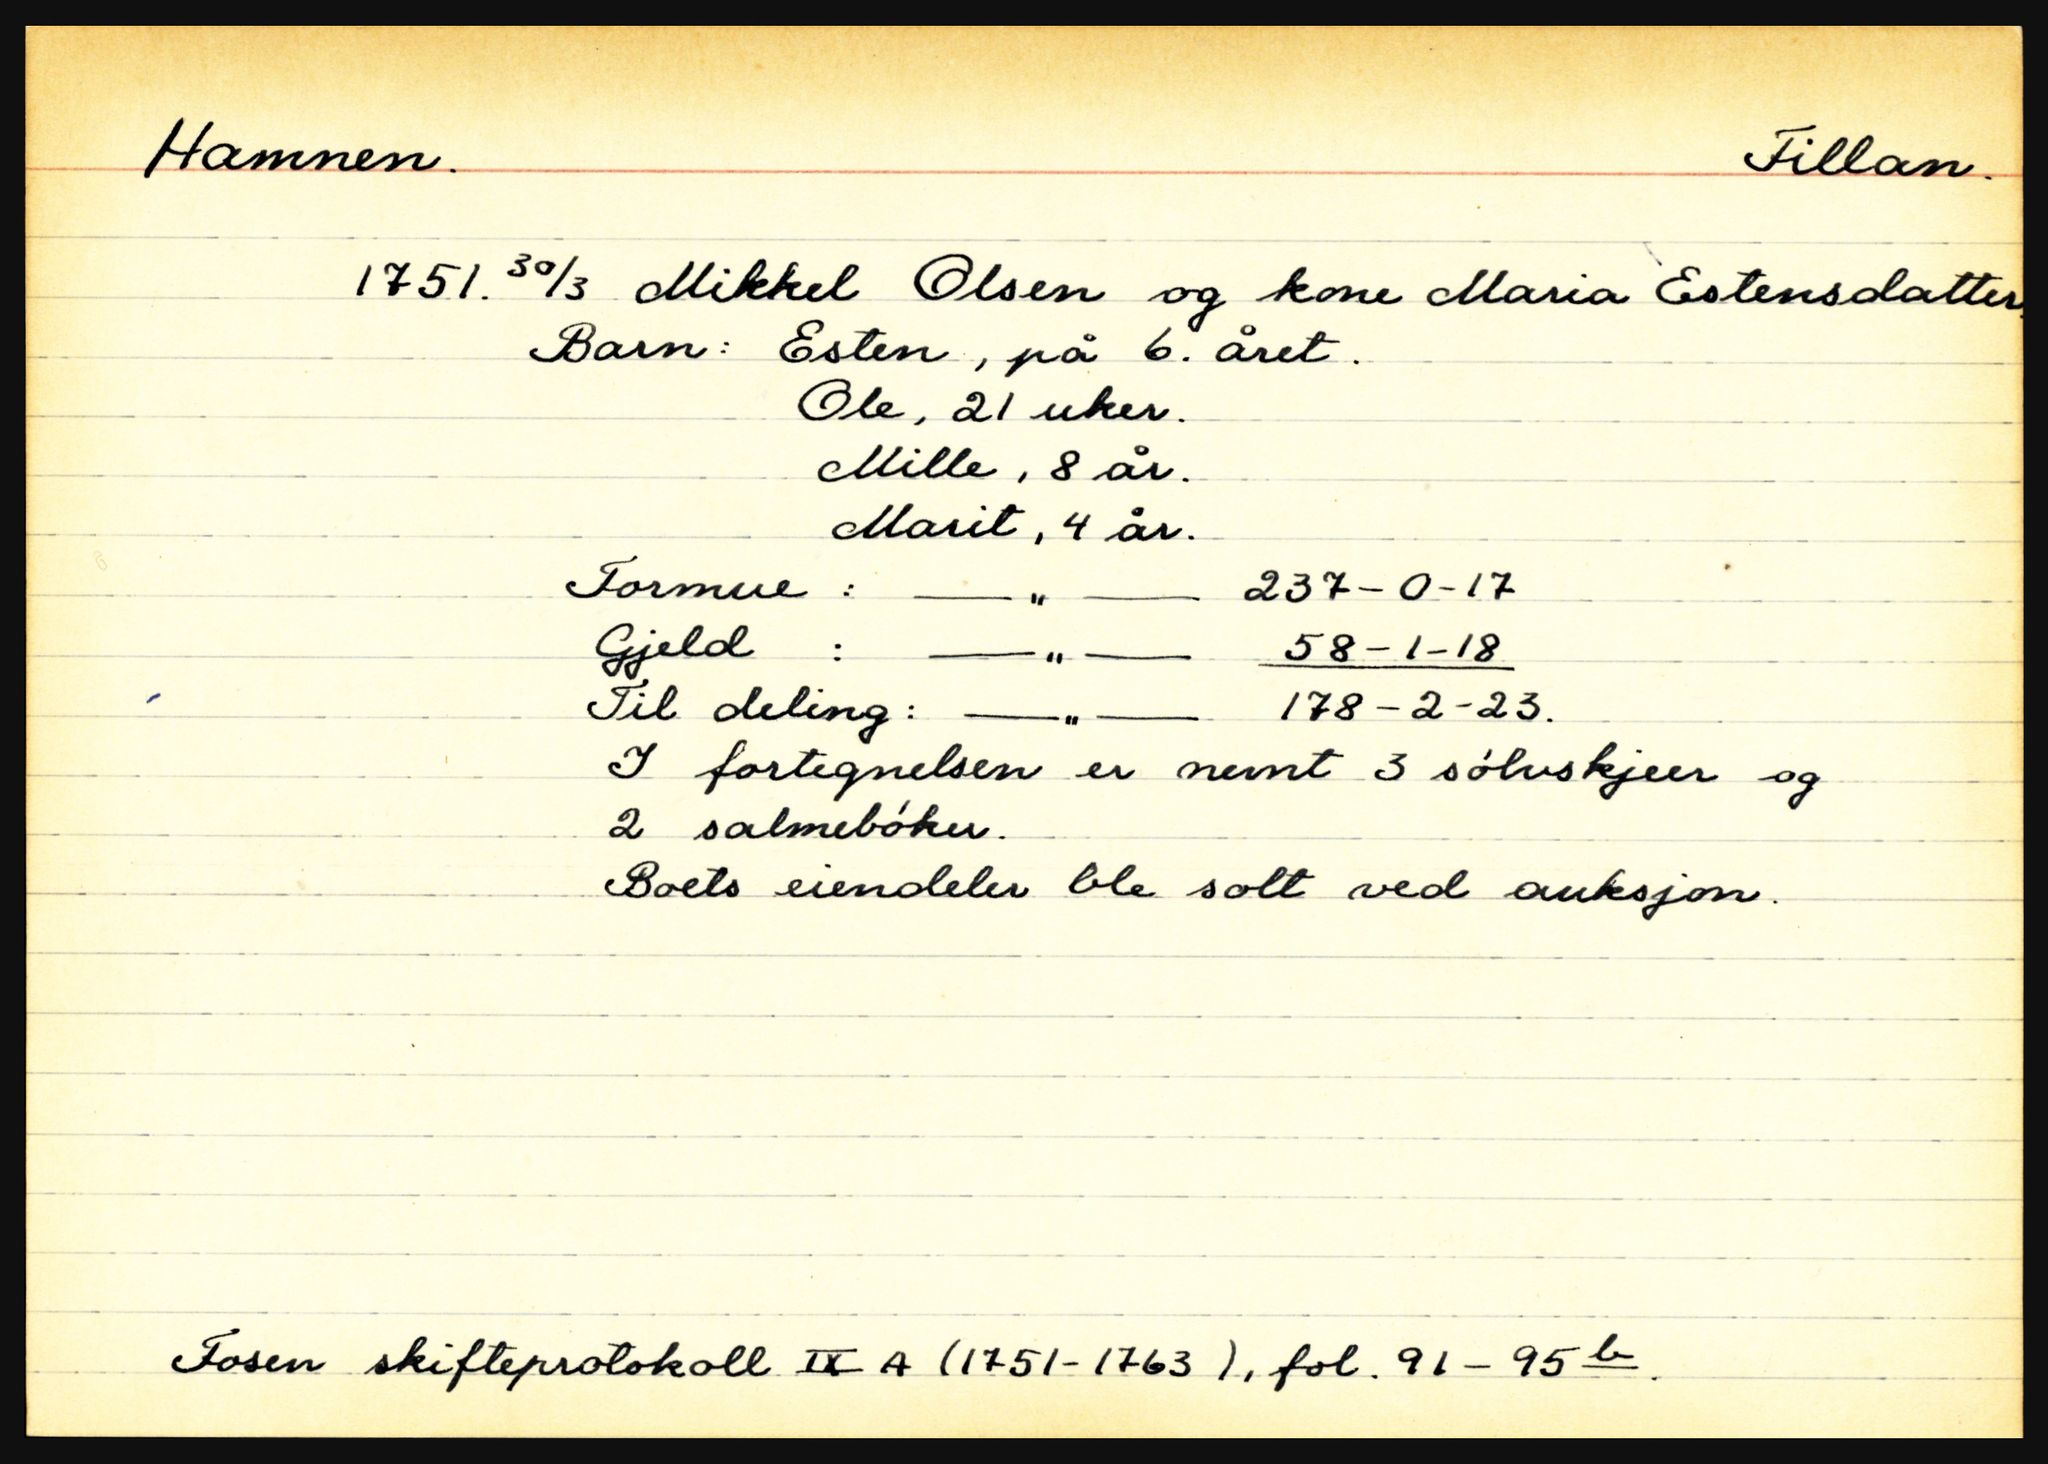 Hamnen. Fillan.
1751. 30/3 Mikkel Olsen og kone Maria Estensdatter.
Barn: Esten, på 6. året.
Ole, 21 uker.
Mille, 8 år.
Marit, 4 år.
Formue : —„— 237-0-17
Gjeld : —„— 58-1-18
Til deling: —„— 178-2-23.
I fortegnelsen er nemt 3 sólvskjeer og
2 salmebóker.
Boets eiendeler ble solt ved auksjon.
Fosen skifteprotokoll IX A (1751-1763), fol. 91-95b.